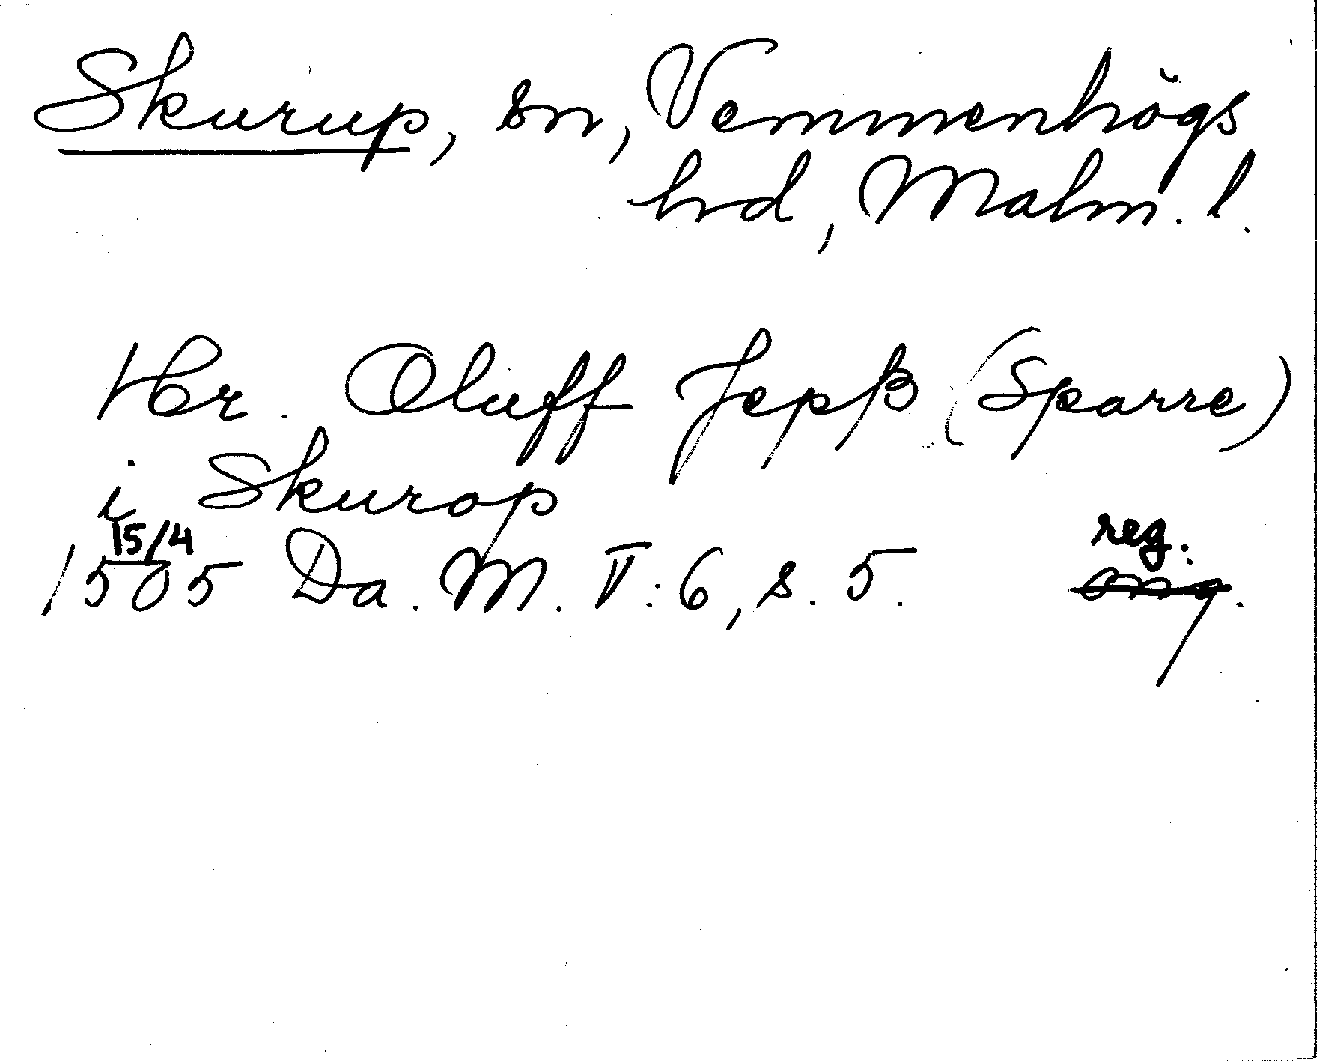 Skurup, sn, Vemmenhögs
hrd, Malm. l.
Hr. Oluff Jepß (Sparre)
i Skurop
15/4 reg.
1505 Da. M. V:6, s. 5. orig.